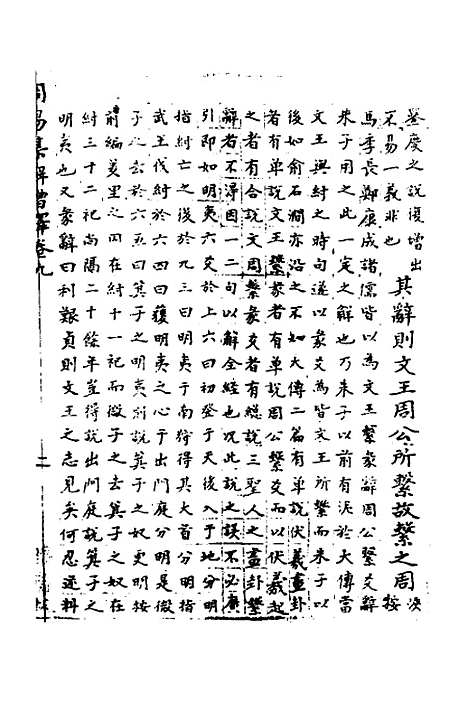 變之說復增出
不易一義非也
其辭則文王周公所繫故繫之周
按漢
馬季長鄭康成諸儒皆以為文王繫彖辭周公繫爻辭
朱子用之此一定之解也乃朱子以前有泥於大傳當
文王與紂之時句遂以彖爻為皆文王所繫而朱子以
後如俞石澗亦沿之不知大傳二篇有單說伏羲畫卦
者有單說文王繫彖者有單說周公繫爻而以伏羲起
之者有合說文周繫彖爻者有總說三聖人之畫卦繫
辭者不得因一二句以解全經也況此說之誤不必廣
引即如明夷六爻於上六曰初登于天後入于地分明
指紂亡之後於九三曰明夷于南狩得其大首分明指
武王伐紂於六四曰獲明夷之心于出門庭分明是微
子之去於六五曰箕子之明夷則說箕子之奴更明按
前編羑里之囚在紂十一祀而微子之去箕子之奴在
紂三十二祀尚隔二十餘年豈得說出門庭說箕子之
明夷也又彖辭曰利艱貞則文王之志見矣何忍逆料
周易集解增釋卷九
二